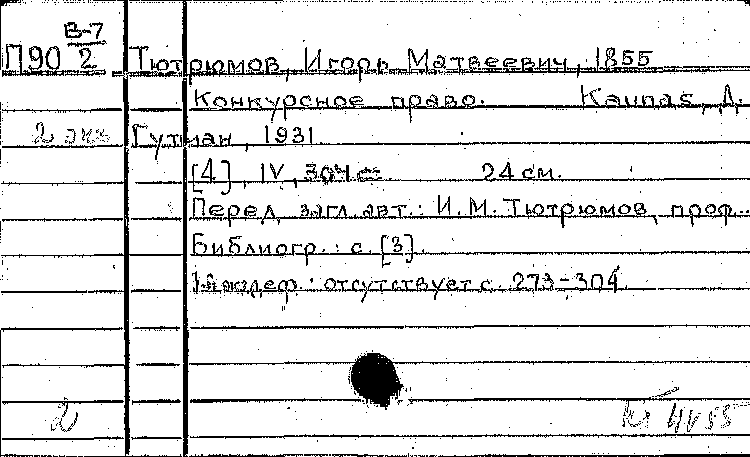 В-7
П90 2 Тютрюмов, Игорь Матвеевич, 1855
Конкурсное право. Kaunas, Д.
2 экз Гутман, 1931.
[4], IV, 304 с 24 см.
Перед загл. авт.: И. М. Тютрюмов, проф.
Библиогр.: с. [3].
деф.: отсутствует с. 273-304
2